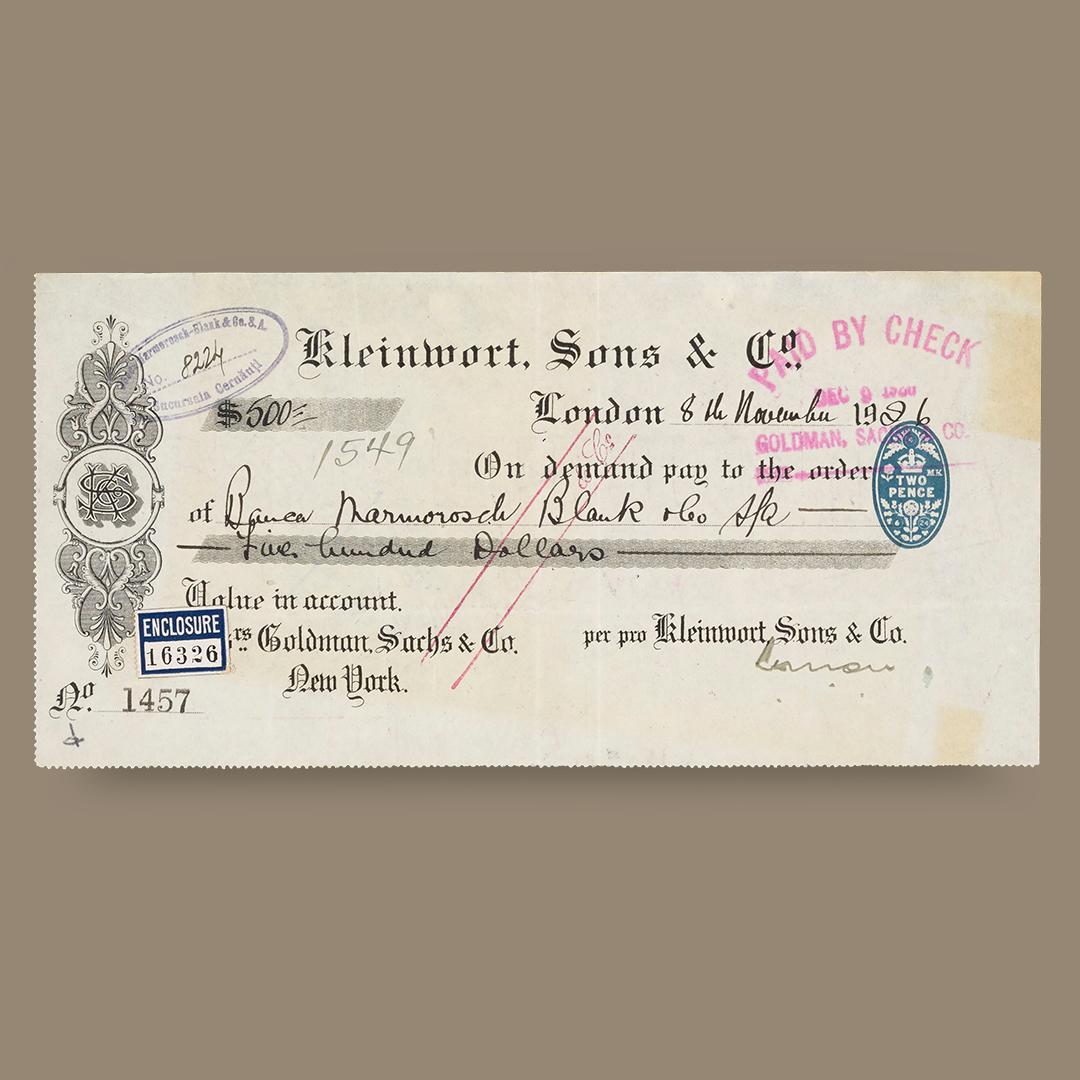 Marmorosch-Blank & Co. S.A.
No. 8224
Sucursala Cernăuți
Kleinwort, Sons & Co.
PAID BY CHECK
DEC 9
GOLDMAN, SACHS & CO.
$500
London 8th November 1926
1549
On demand pay to the order
of Banca Marmorosch Blank & Co S/A
Five hundred Dollars
TWO
PENCE
Value in account.
ENCLOSURE
16326
rs Goldman, Sachs & Co.
New York.
per pro Kleinwort, Sons & Co.
No. 1457